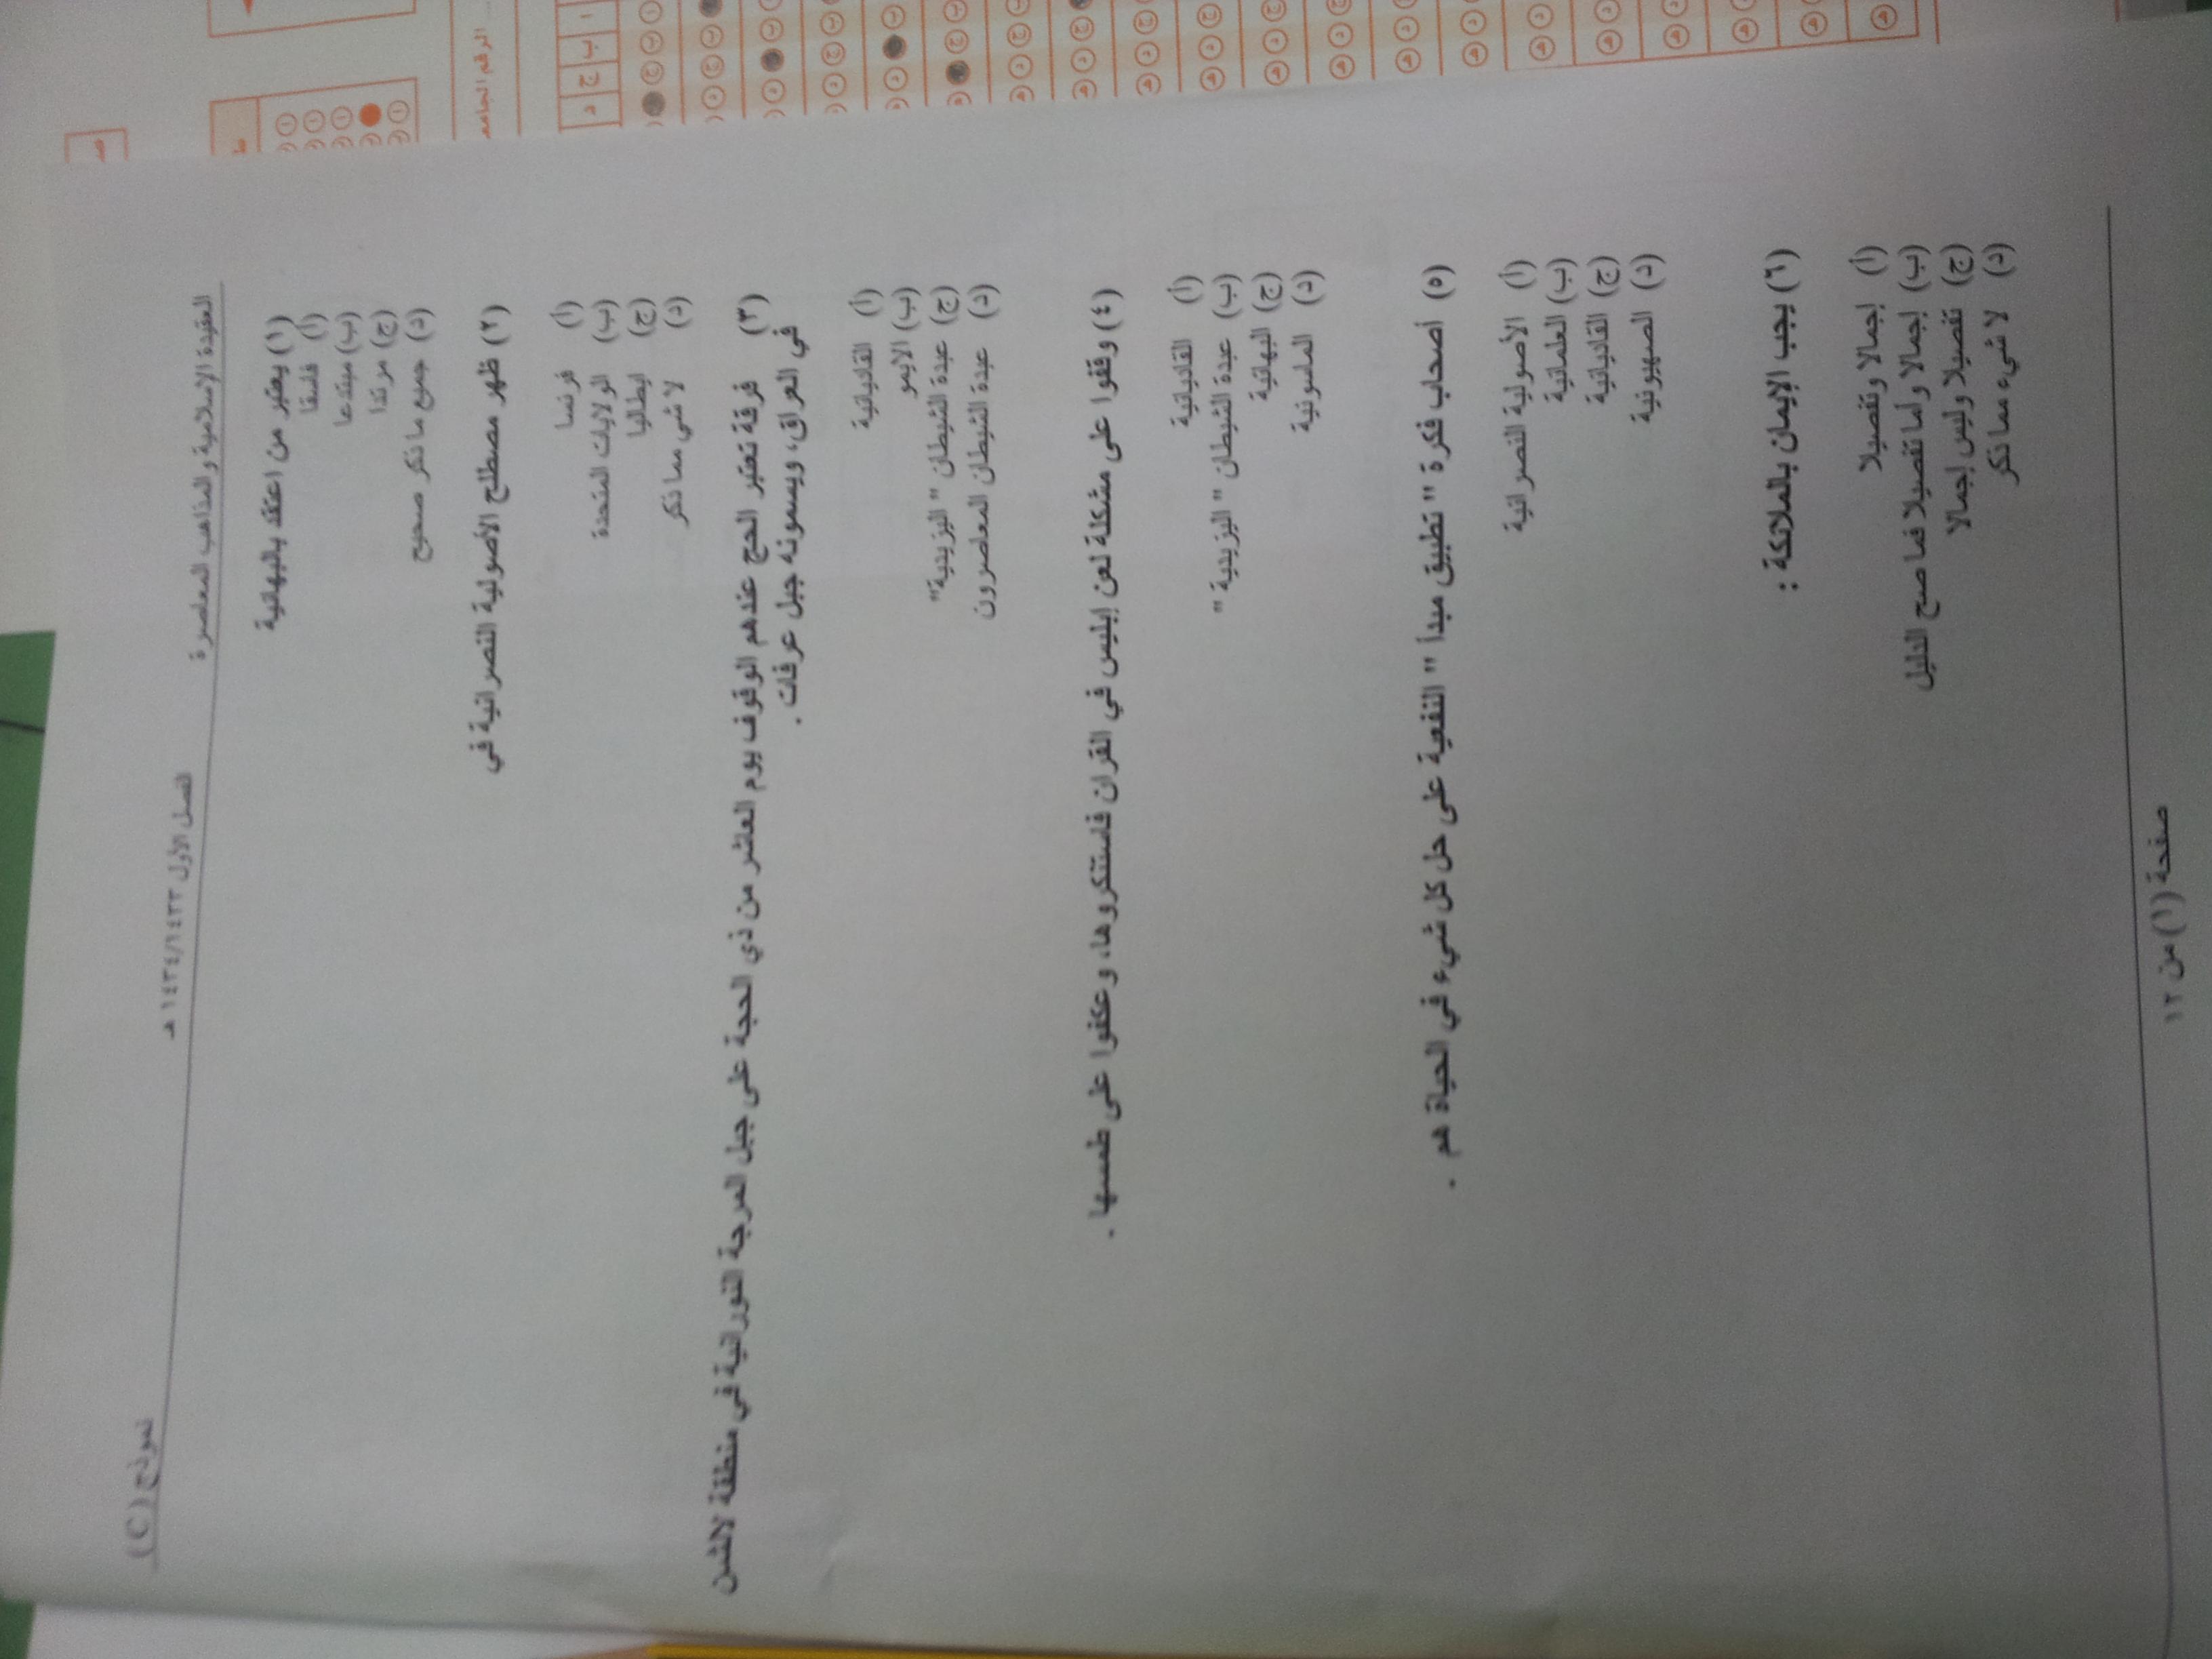 الرقم الجامعي
العقيدة الإسلامية والمذاهب المعاصرة
الفصل الأول ١٤٣٤/١٤٣٣ هـ
نموذج (C)
(١) يعتبر من اعتقد بالبهائية
(أ) فاسقا
(ب) مبتدعا
(ج) مرتدا
(د) جميع ما ذكر صحيح
(٢) ظهر مصطلح الأصولية النصرانية في
(أ) فرنسا
(ب) الولايات المتحدة
(ج) ايطاليا
(د) لا شي مما ذكر
(٣) فرقة تعتبر الحج عندهم الوقوف يوم العاشر من ذي الحجة على جبل المرجة النورانية في منطقة لالش
في العراق، ويسمونه جبل عرفات .
(أ) القاديانية
(ب) الايمو
(ج) عبدة الشيطان " اليزيدية"
(د) عبدة الشيطان المعاصرون
(٤) وقفوا على مشكلة لعن إبليس في القرآن فاستنكروها، وعكفوا على طمسها .
(أ) القاديانية
(ب) عبدة الشيطان " اليزيدية "
(ج) البهائية
(د) الماسونية
(٥) أصحاب فكرة " تطبيق مبدأ " النفعية على حل كل شيء في الحياة هم .
(أ) الأصولية النصرانية
(ب) العلمانية
(ج) القاديانية
(د) الصهيونية
(٦) يجب الإيمان بالملائكة :
(أ) إجمالا وتفصيلا
(ب) إجمالا وأما تفصيلا فما صح الدليل
(ج) تفصيلا وليس إجمالا
(د) لا شيء مما ذكر
صفحة (١) من ١٢